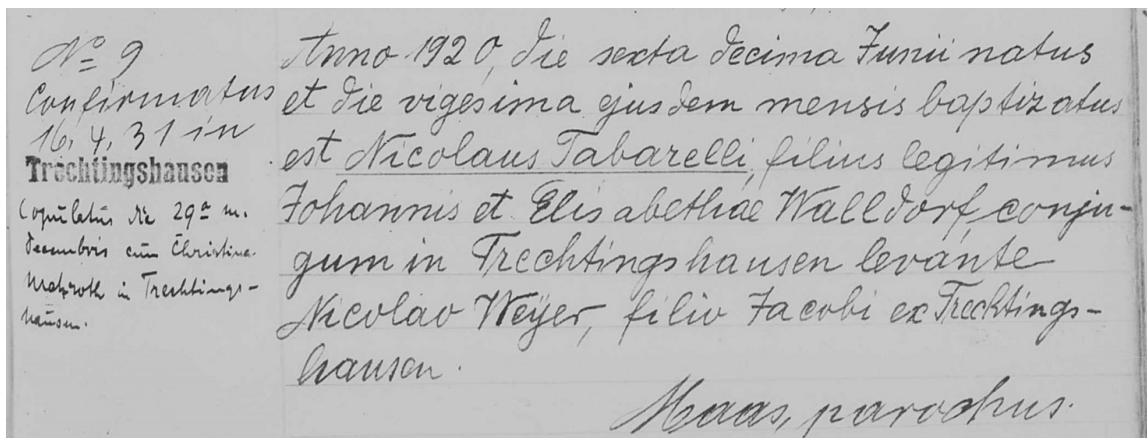 No 9
Confirmatus
16. 4. 31 in
Trechtingshausen
Copulatus die 29a m.
Decembris cum Christina
in Trechtings-
hausen.
Anno 1920, die sexta decima Junii natus
et die vigesima ejusdem mensis baptizatus
est Nicolaus Tabarelli, filius legitimus
Johannis et Elisabethae Walldorf, conju-
gum in Trechtingshausen levante
Nicolao Weÿer, filio Jacobi ex Trechtings-
hausen.
Maas, parochus.